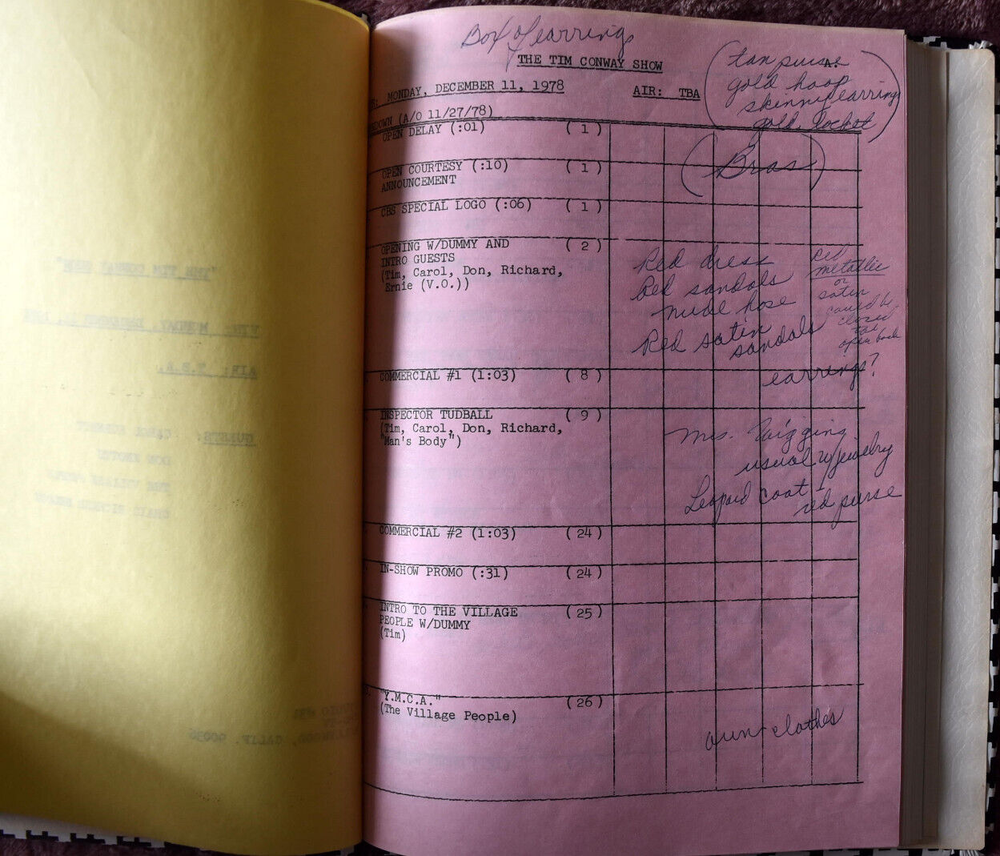 Box of earrings
THE TIM CONWAY SHOW
MONDAY, DECEMBER 11, 1978
AIR: TBA
(A/O 11/27/78)
tan purse
gold hoop
skinny earring
gold locket
OPEN DELAY (:01) ( 1 )
OPEN COURTESY (:10) ( 1 )
ANNOUNCEMENT
(Brass)
CBS SPECIAL LOGO (:06) ( 1 )
OPENING W/DUMMY AND ( 2 )
INTRO GUESTS
(Tim, Carol, Don, Richard,
Ernie (V.O.))
Red dress
Red sandals
nude hose
Red satin
sandals
red
metallic
or
satin
could be
closed
but
open back
COMMERCIAL #1 (1:03) ( 8 )
earrings?
INSPECTOR TUDBALL ( 9 )
(Tim, Carol, Don, Richard,
"Man's Body")
Mrs. Wiggins
usual w/jewelry
Leopard coat
red purse
COMMERCIAL #2 (1:03) ( 24 )
IN-SHOW PROMO (:31) ( 24 )
INTRO TO THE VILLAGE ( 25 )
PEOPLE W/DUMMY
(Tim)
"Y.M.C.A." ( 26 )
(The Village People)
own clothes